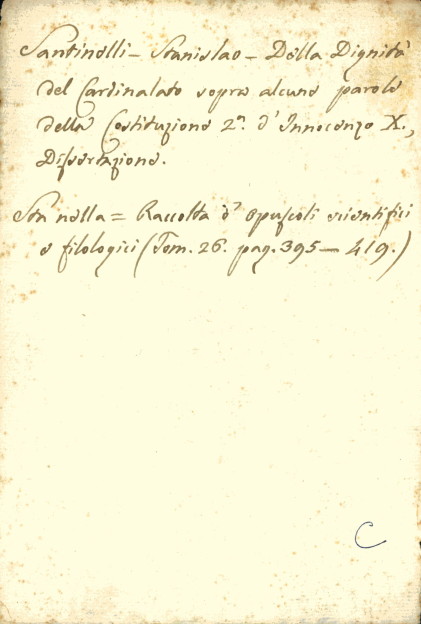 Santinelli - Stanislao - Della Dignità
del Cardinalato sopra alcune parole
della Costituzione 2ª. d'Innocenzo X.,
Dissertazione.
Sta nella = Raccolta d'opuscoli scientifici
e filologici (Tom. 26. pag. 395 — 419.)
C